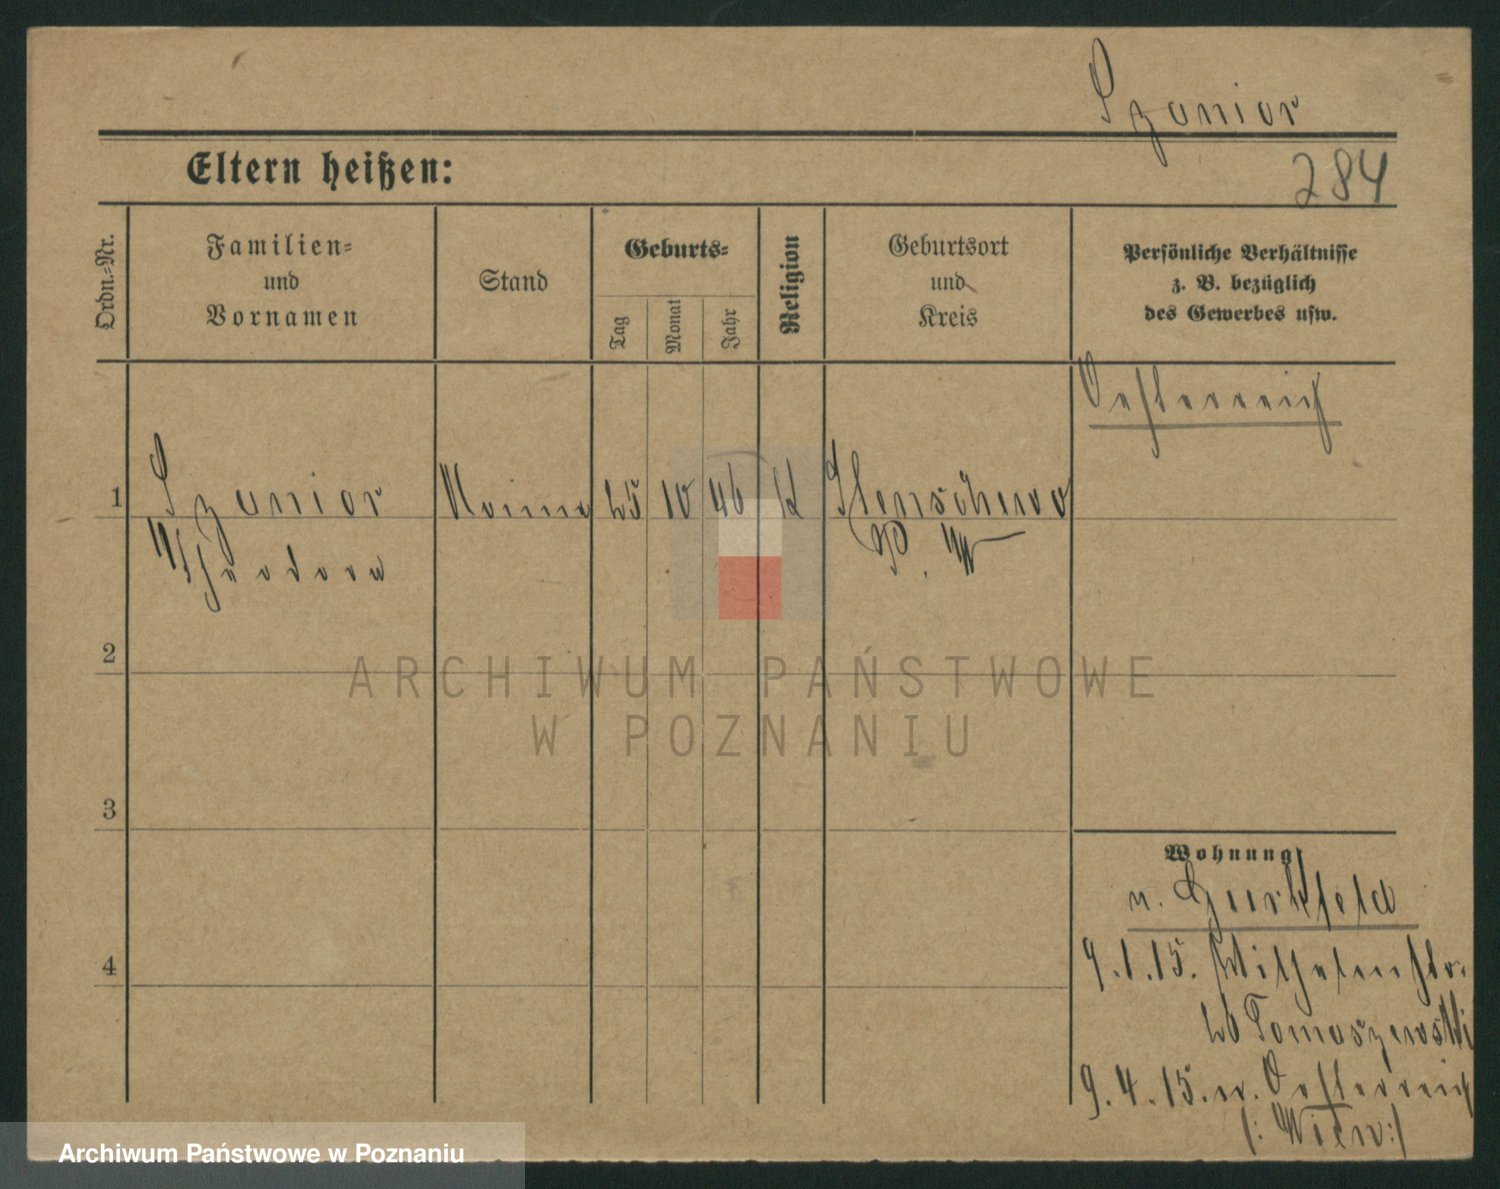 Szunior
284
Eltern heißen:
Ordn.-Nr.
Familien-
und
Vornamen
Stand
Geburts-
Tag
Monat
Jahr
Religion
Geburtsort
und
Kreis
Persönliche Verhältnisse
z. B. bezüglich
des Gewerbes usw.
Oesterreich
1
Szunior
Theodora
Nonne
25
10
46
K
P. W
2
3
4
Wohnung
n. Gurkfeld
9.1.15. Wilhelmstr.
26 Tomaszewski
9.4.15. n. Oesterreich
(: Wien :)
ARCHIWUM PAŃSTWOWE
W POZNANIU
Archiwum Państwowe w Poznaniu